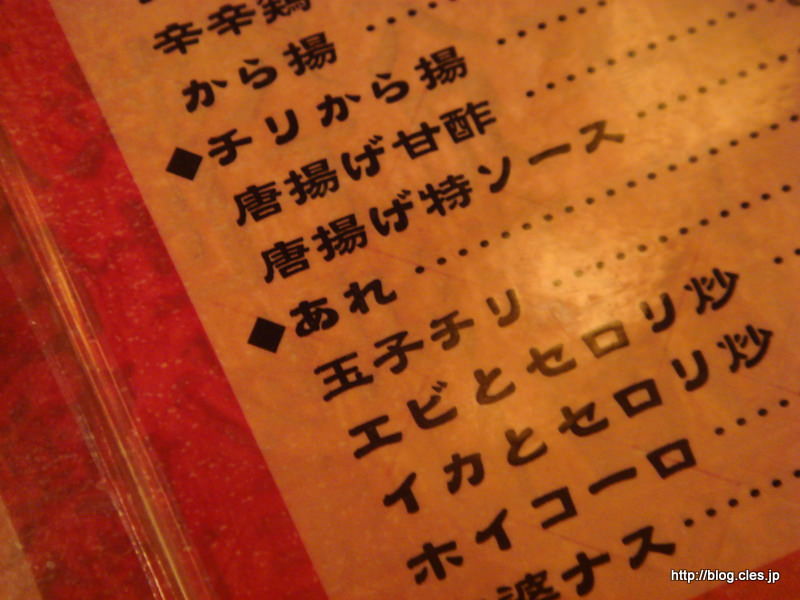 辛辛鶏
から揚
◆チリから揚
唐揚げ甘酢
唐揚げ特ソース
◆あれ
玉子チリ
エビとセロリ炒
イカとセロリ炒
ホイコーロ
婆ナス
http://blog.cles.jp